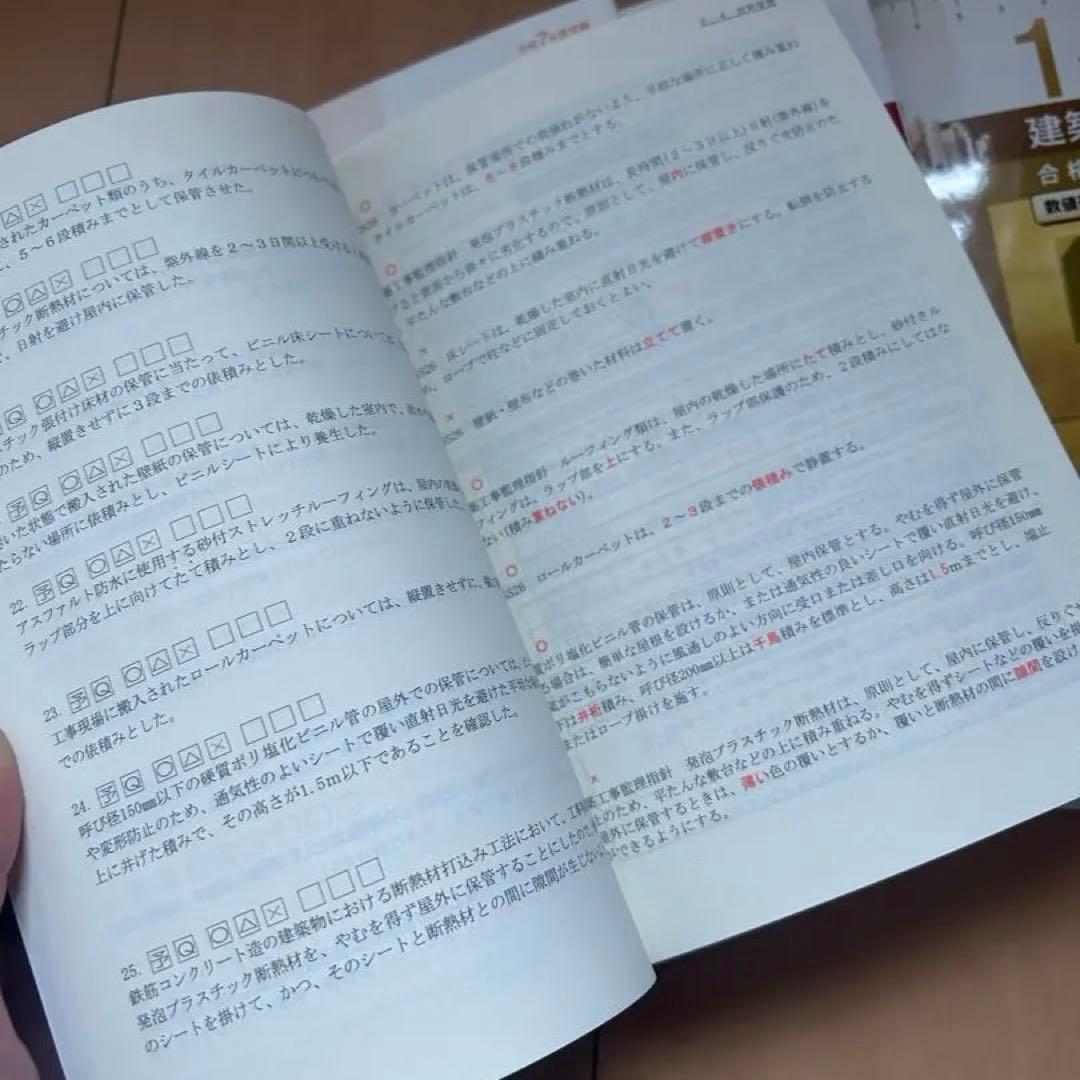 △ × □□□
されたカーペット類のうち、タイルカーペットについ
、5〜6段積みまでとして保管させた。
○ △ × □□□
チック断熱材については、紫外線を2〜3日間以上受ける
、日射を避け屋内に保管した。
Q ○ △ × □□□
チック張付け床材の保管に当たって、ビニル床シートについて
のため、縦置きせずに3段までの俵積みとした。
予 Q ○ △ × □□□
巻いた状態で搬入された壁紙の保管については、乾燥した室内で、
たらない場所に俵積みとし、ビニルシートにより養生した。
22. 予 Q ○ △ × □□□
アスファルト防水に使用する砂付ストレッチルーフィングは、屋内の
ラップ部分を上に向けてたて積みとし、2段に重ねないように保管した
23. 予 Q ○ △ × □□□
工事現場に搬入されたロールカーペットについては、縦置きせずに、
での俵積みとした。
24. 予 Q ○ △ × □□□
呼び径150㎜以下の硬質ポリ塩化ビニル管の屋外での保管については、
や変形防止のため、通気性のよいシートで覆い直射日光を避けた平
上に井げた積みで、その高さが1.5m以下であることを確認した。
25. 予 Q ○ △ × □□□
鉄筋コンクリート造の建築物における断熱材打込み工法において、工
発泡プラスチック断熱材を、やむを得ず屋外に保管することにしたので
のシートを掛けて、かつ、そのシートと断熱材との間に隙間が生じない
○ カーペットは、保管場所での荷崩れがないよう、平坦な場所に正しく積み重ね
タイルカーペットは、5〜6段積みまでとする。
○ 工事監理指針 発泡プラスチック断熱材は、長時間(2〜3日以上)日射(紫外線)を
ると表面から徐々に劣化するので、原則として、屋内に保管し、反りぐせ防止のた
平たんな敷台などの上に積み重ねる。
× 床シートは、乾燥した室内に直射日光を避けて縦置きにする。転倒を防止する
め、ロープで柱などに固定しておくとよい。
× 壁紙・壁布などの巻いた材料は立てて置く。
○ 工事監理指針 ルーフィング類は、屋内の乾燥した場所にたて積みとし、砂付きル
フィングは、ラップ部を上にする。また、ラップ部保護のため、2段積みにしてはな
ない(積み重ねない)。
○ ロールカーペットは、2〜3段までの俵積みで静置する。
○ 質ポリ塩化ビニル管の保管は、原則として、屋内保管とする。やむを得ず屋外に保管
る場合は、簡単な屋根を設けるか、または通気性の良いシートで覆い直射日光を避け、
気がこもらないように風通しのよい方向に受口または差し口を向ける。呼び径150㎜
下は井桁積み、呼び径200㎜以上は千鳥積みを標準とし、高さは1.5mまでとし、端止
またはロープ掛けを施す。
× 工事監理指針 発泡プラスチック断熱材は、原則として、屋内に保管し、反りぐせ
止のため、平たんな敷台などの上に積み重ねる。やむを得ずシートなどの覆いを掛
屋外に保管するときは、薄い色の覆いとするか、覆いと断熱材の間に隙間を設け
ができるようにする。
1
建築
合格
数値